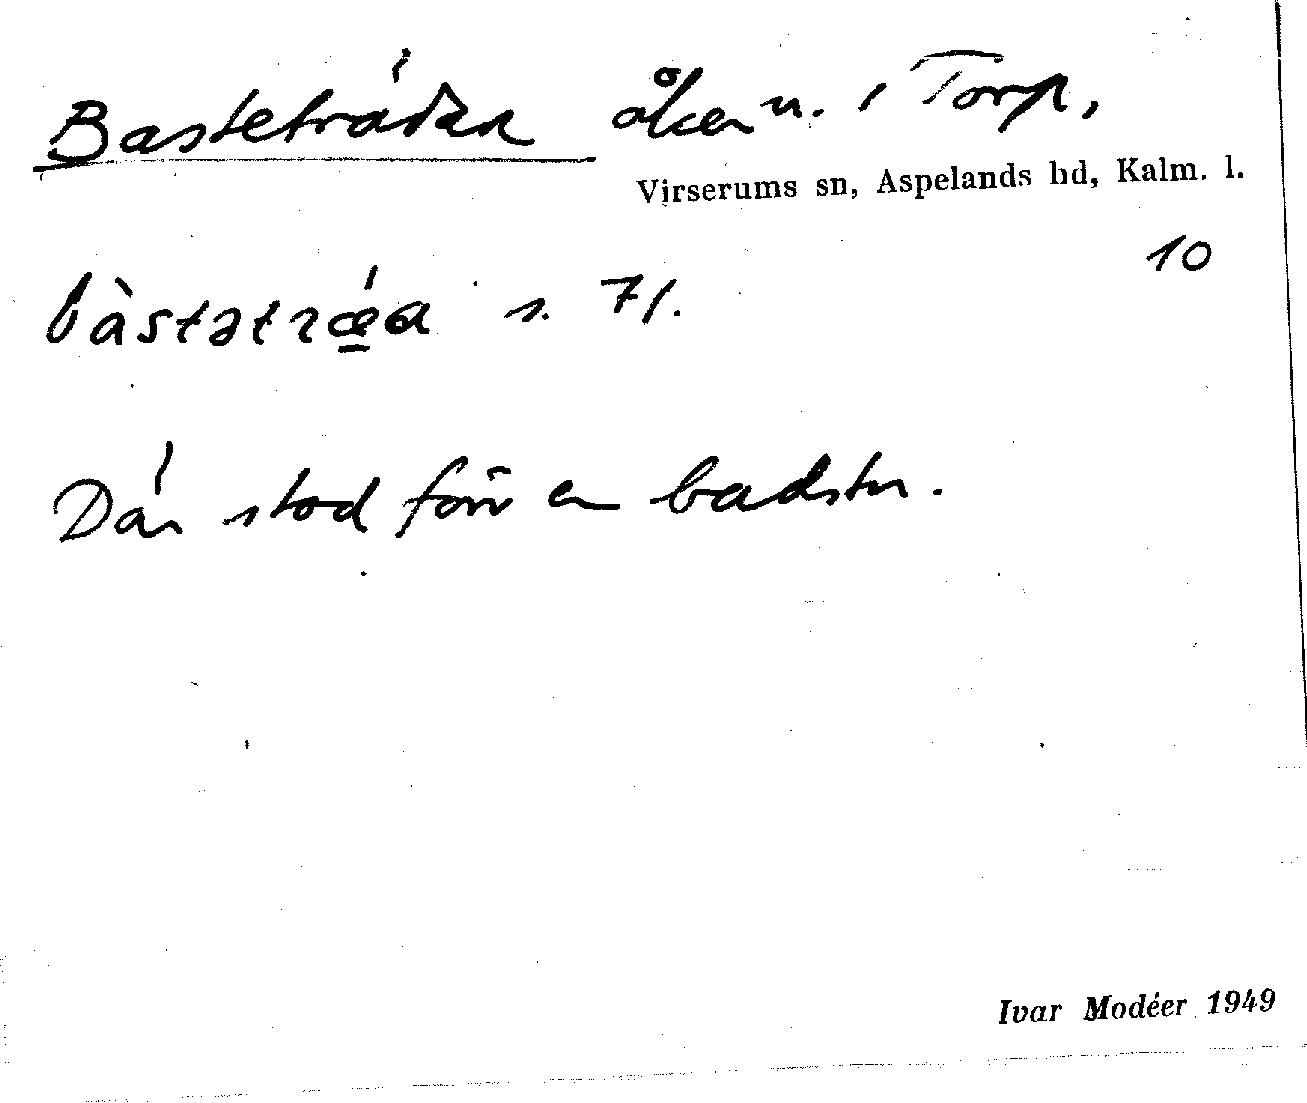 Basteträdan åkern. i Torp,
Virserums sn, Aspelands hd, Kalm. l.
10
bàstətrǽ̱a s. 71.
Där stod förr en badstu.
Ivar Modéer 1949